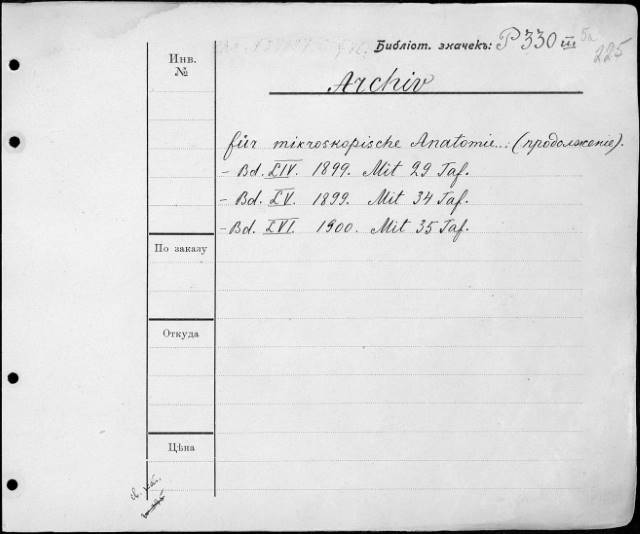 Библіот. значекъ: P 330 III 5a
225
Инв.
№
Archiv
für mikroskopische Anatomie... (продолженіе).
- Bd. LIV. 1899. Mit 29 Taf.
- Bd. LV. 1899. Mit 34 Taf.
- Bd. LVI. 1900. Mit 35 Taf.
По заказу
Откуда
Цѣна